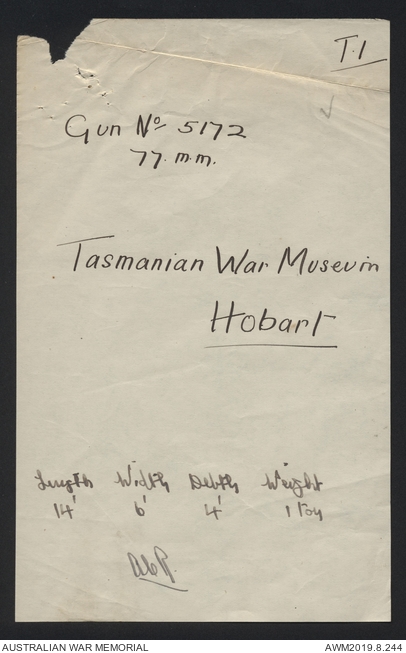 T.1
Gun No 5172
77. m.m.
Tasmanian War Museum
Hobart
Length Width Debth Weight
14' 6' 4' 1 Ton
AUSTRALIAN WAR MEMORIAL AWM2019.8.244